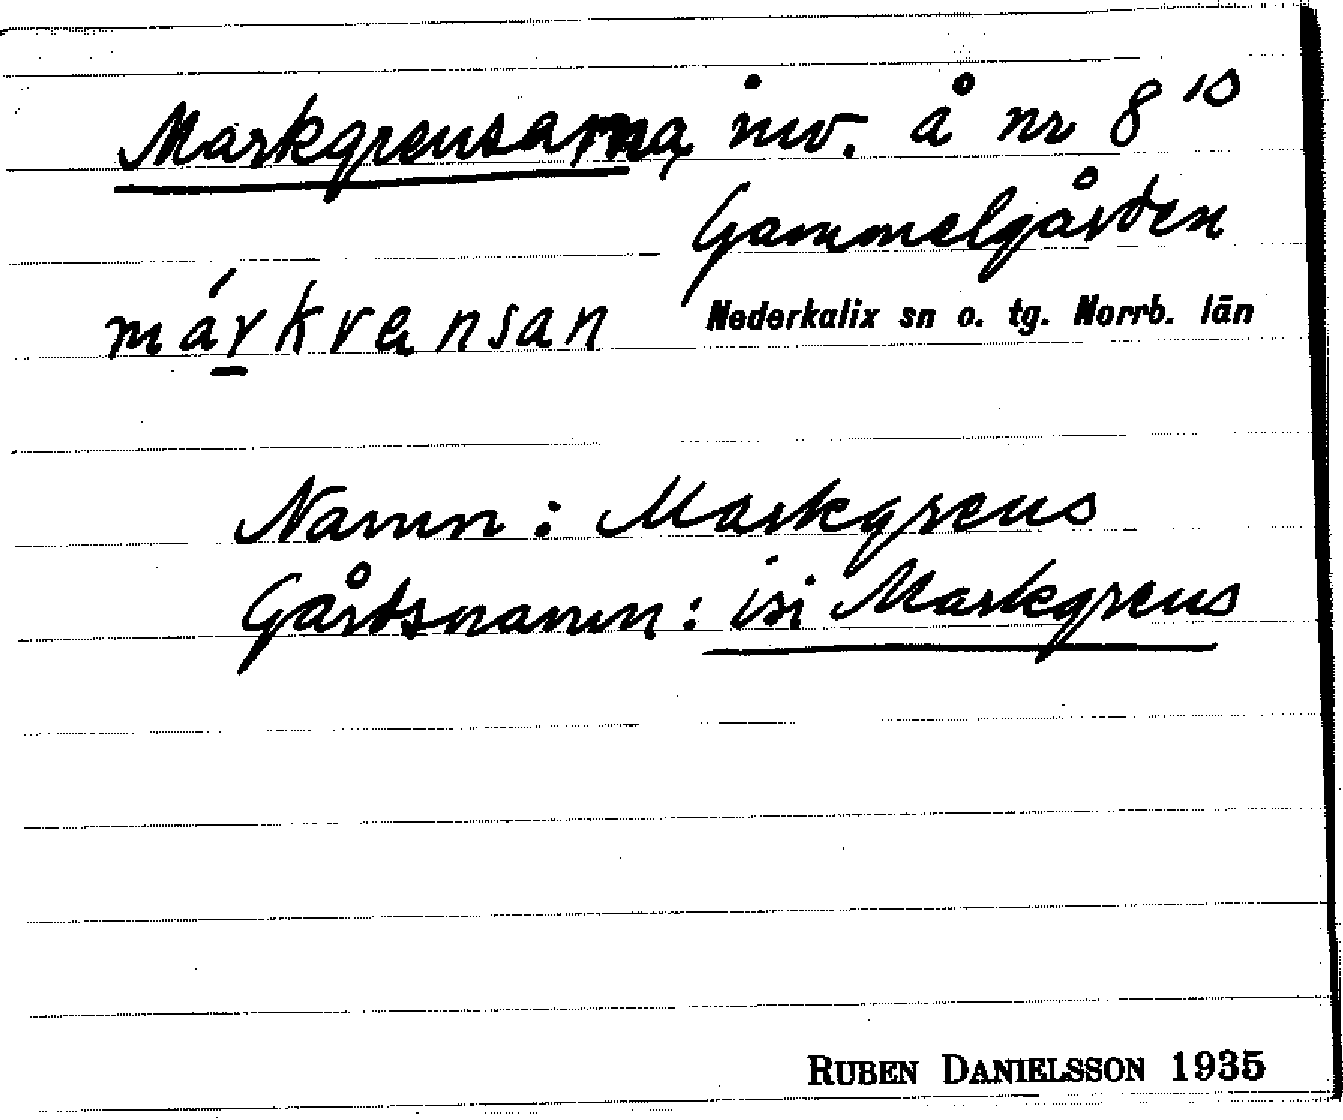 Markgrensarna inv. å nr 8¹⁰
Gammelgården
márkrensan Nederkalix sn o. tg. Norrb. län
Namn: Markgrens
Gårdsnamn: isi Markgrens
RUBEN DANIELSSON 1935